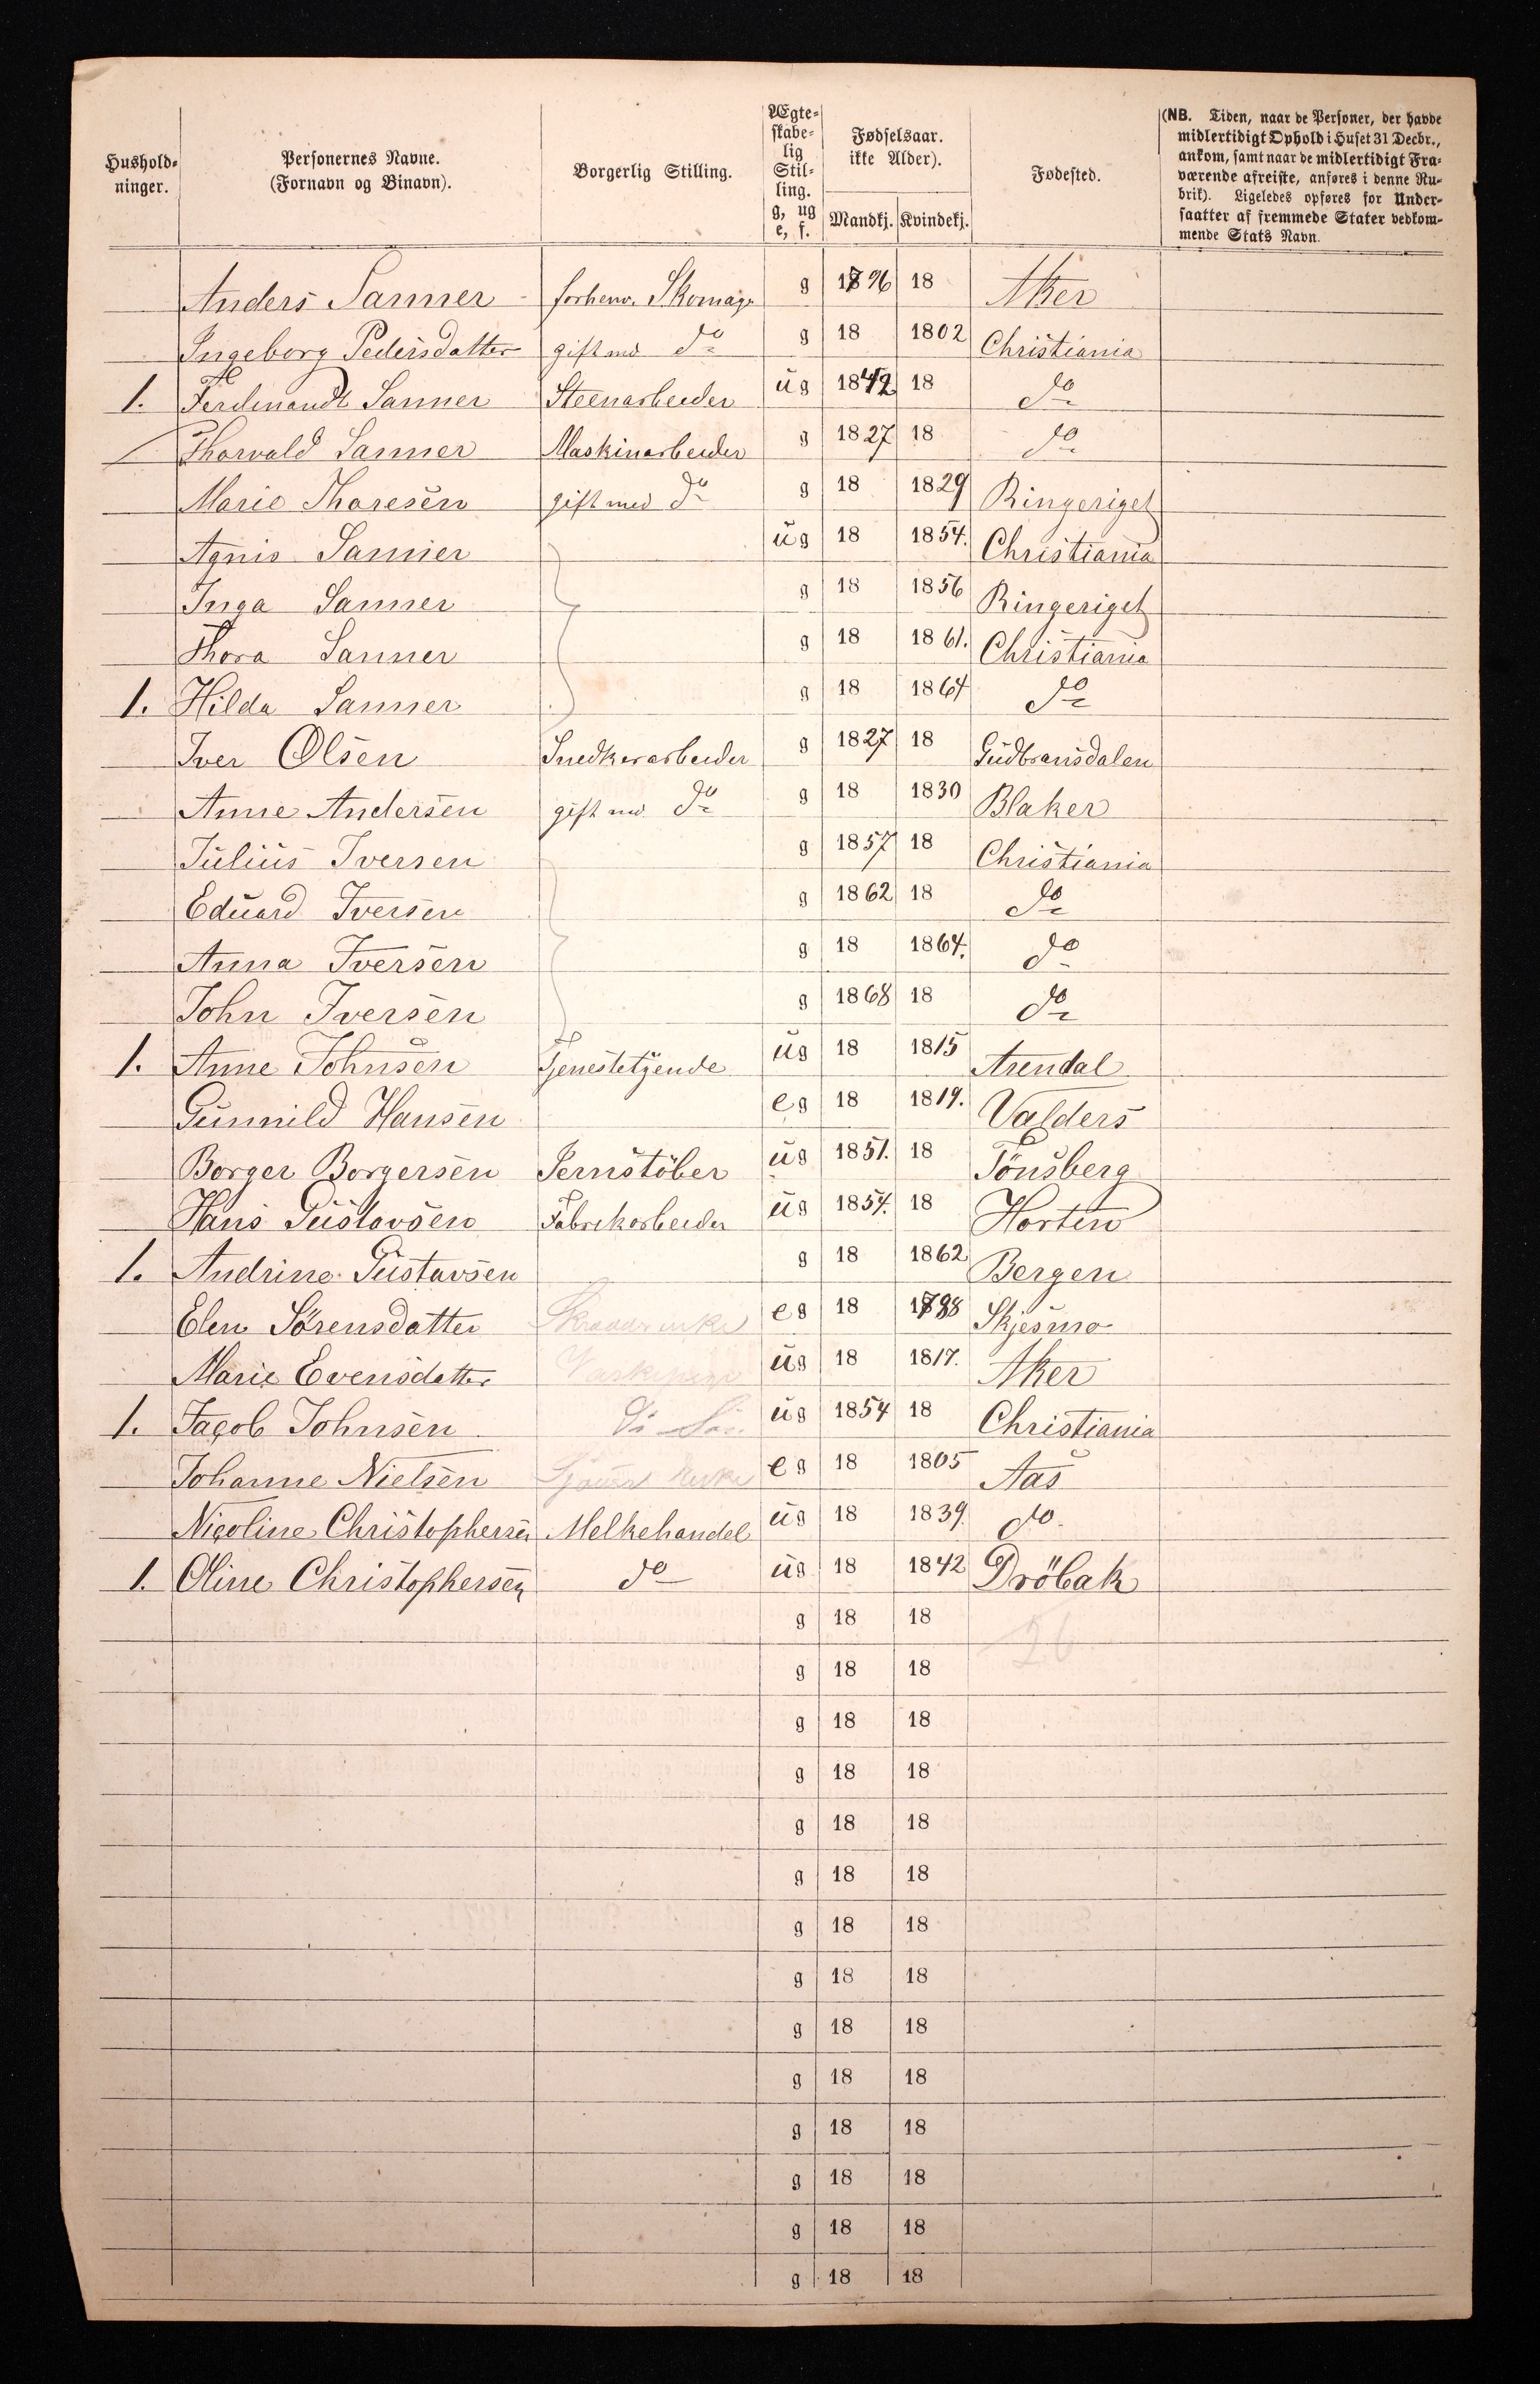 Hushold-
ninger.
Personernes Navne.
(Fornavn og Binavn).
Borgerlig Stilling.
Ægte-
skabe-
lig
Stil-
ling.
g, ug
e, f.
Fødselsaar.
ikke Alder).
Mandkj. Kvindekj.
Fødested.
(NB. Tiden, naar de Personer, der havde
midlertidigt Ophold i Huset 31 Decbr.,
ankom, samt naar de midlertidigt Fra-
værende afreiste, anføres i denne Ru-
brik). Ligeledes opføres for Under-
saatter af fremmede Stater vedkom-
mende Stats Navn.
Anders Sanner forhenv. Skomager g 1796 18 Aker
Ingeborg Pedersdatter gift med do g 18 1802 Christiania
1. Ferdinandt Sanner Steenarbeider ug 1842 18 do
Thorvald Sanner Maskinarbeider g 1827 18 do
Marie Thoresen gift med do g 18 1829 Ringeriget
Agnis Sanner ug 18 1854. Christiania
Inga Sanner g 18 1856 Ringeriget
Thora Sanner g 18 1861. Christiania
1. Hilda Sanner g 18 1864 do
Iver Olsen Snedkerarbeider g 1827 18 Gudbransdalen
Anne Andersen gift med do g 18 1830 Blaker
Julius Iversen g 1857 18 Christiania
Eduard Iversen g 1862 18 do
Anna Iversen g 18 1864. do
John Iversen g 1868 18 do
1. Anne Johnsen Tjenestetjende ug 18 1815 Arendal
Gunnild Hansen eg 18 1819. Valders
Borger Borgersen Jernstöber ug 1851. 18 Tönsberg
Hans Gustavsen Fabrikarbeider ug 1854. 18 Horten
1. Andrine Gustavsen g 18 1862 Bergen
Elen Sørensdatter eg 18 1798 Skjesmo
Marie Evensdatter Vaskepige ug 18 1817. Aker
1. Jacob Johnsen Ds Søn ug 1854 18 Christiania
Johanne Nielsen Enke eg 18 1805 Aas
Nicoline Christophersen Melkehandel ug 18 1839. do.
1. Oline Christophersen do ug 18 1842 Dröbak
g 18 18 26
g 18 18
g 18 18
g 18 18
g 18 18
g 18 18
g 18 18
g 18 18
g 18 18
g 18 18
g 18 18
g 18 18
g 18 18
g 18 18